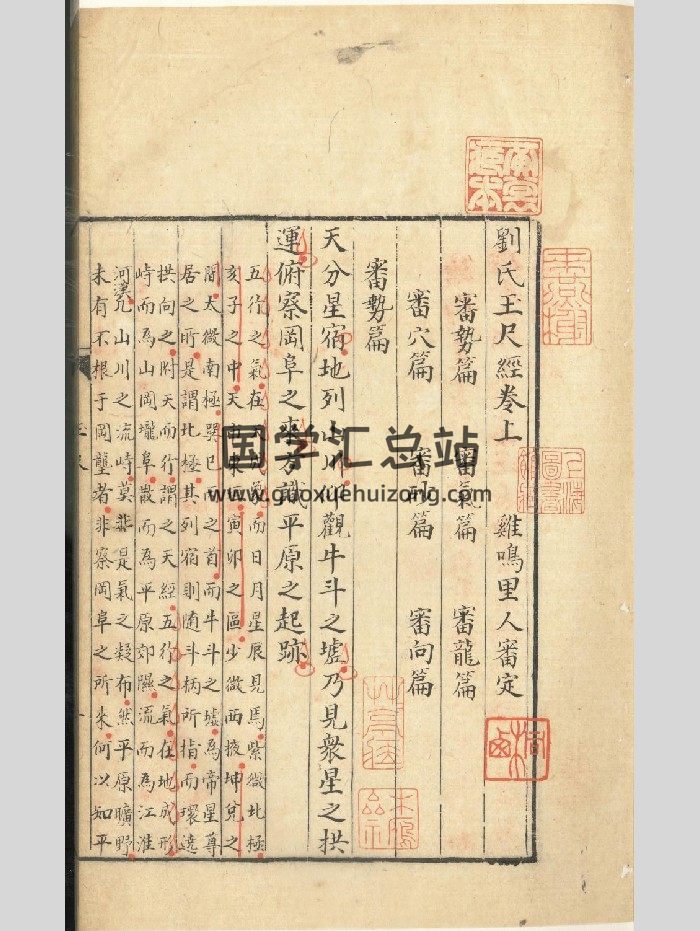 劉氏玉尺經卷上 雞鳴里人審定
審勢篇 審氣篇 審龍篇
審穴篇 審砂篇 審向篇
審勢篇
天分星宿地列山川仰觀牛斗之墟乃見衆星之拱
運俯察岡阜之來方識平原之起跡
五行之氣在天成象而日月星辰見焉紫微北極
亥子之中天市東垣寅卯之區少微西掖坤兌之
間太微南極巽巳丙之首而牛斗之墟為帝星尊
居之所是謂北極其列宿則隨斗柄所指而環遶
拱向之附天而行謂之天經五行之氣在地成形
峙而為山岡壠阜散而為平原郊隰流而為江淮
河漢凡山川之流峙莫非是氣之凝布然平原曠野
未有不根于岡壟者非察岡阜之所來何以知平
国学汇总站
www.gaoxuehuizong.com